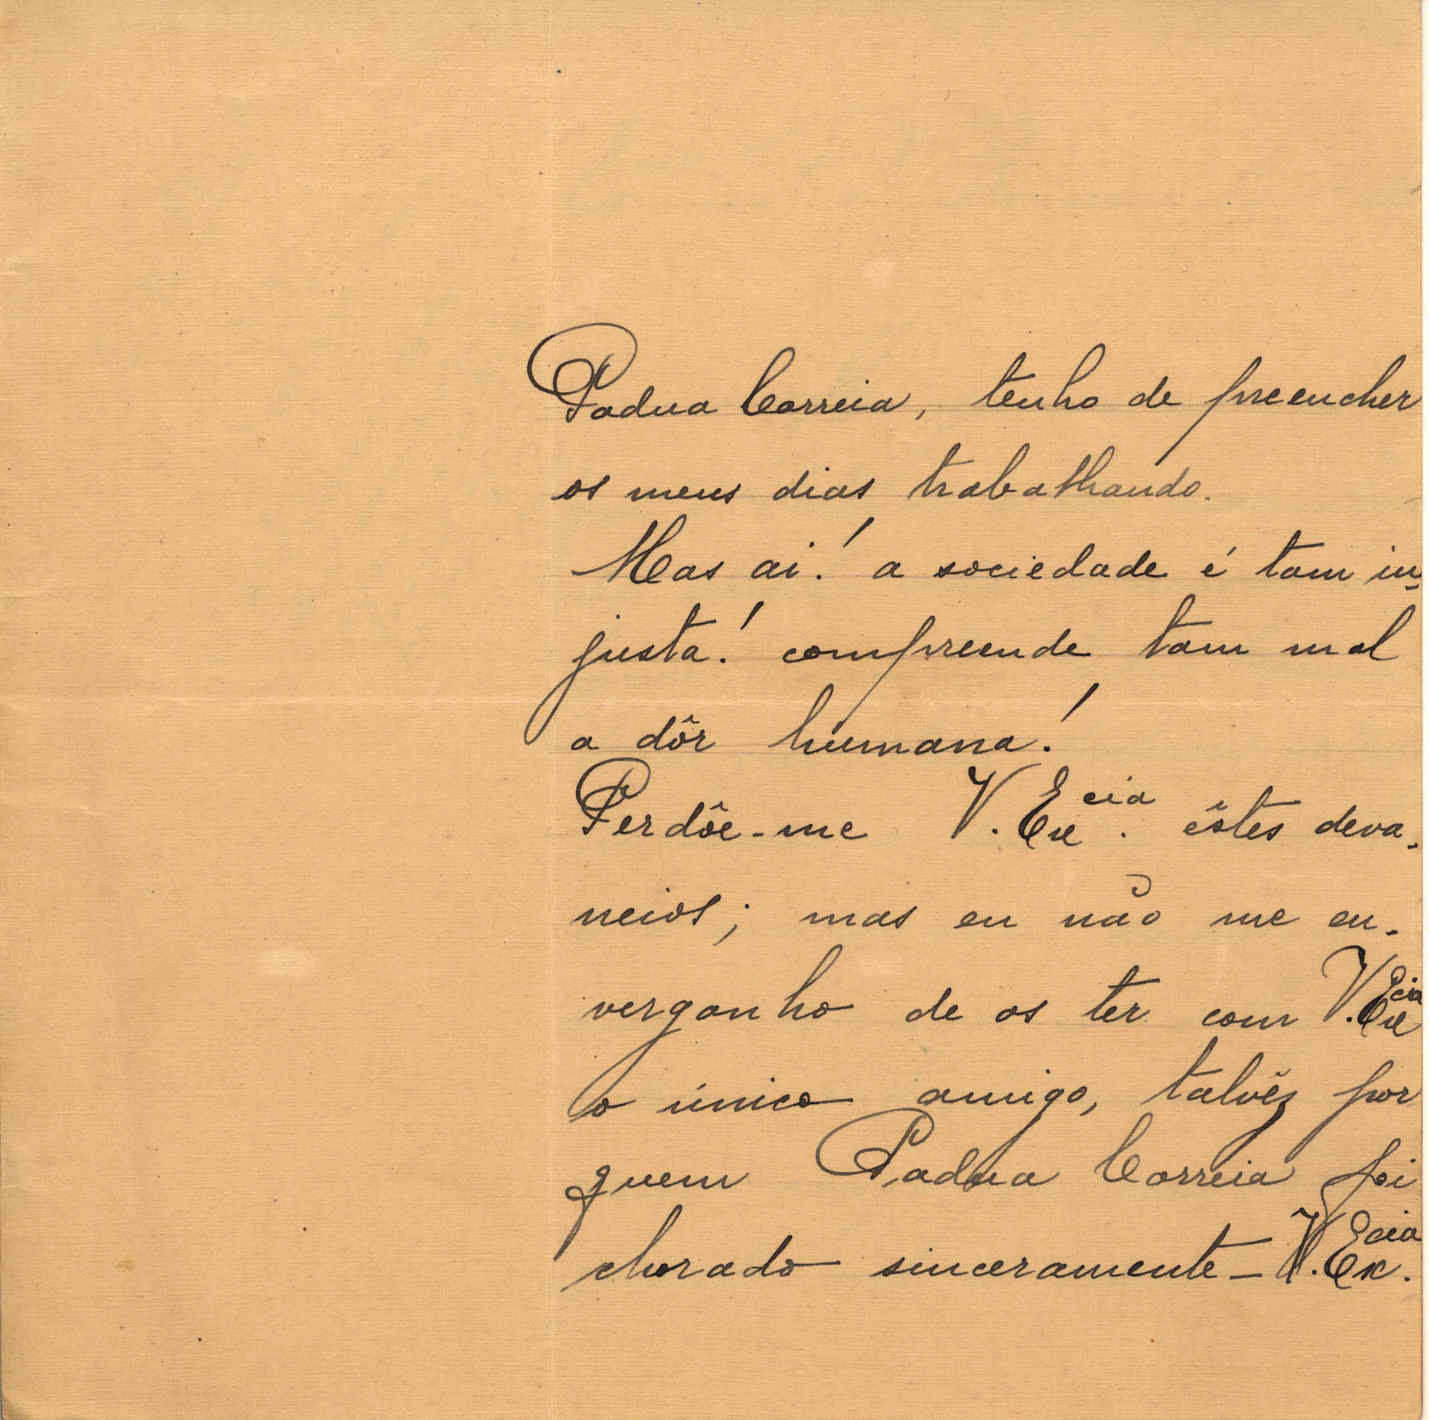 Padua Correia, tenho de preencher
os meus dias trabalhando.
Mas ai! a sociedade é tam in-
justa! compreende tam mal
a dôr humana!
Perdôe-me V. Ex.cia êstes deva-
neios; mas eu não me en-
vergonho de os ter com V. Ex.cia
o único amigo, talvêz por
quem Padua Correia foi
chorado sinceramente - V. Ex.cia